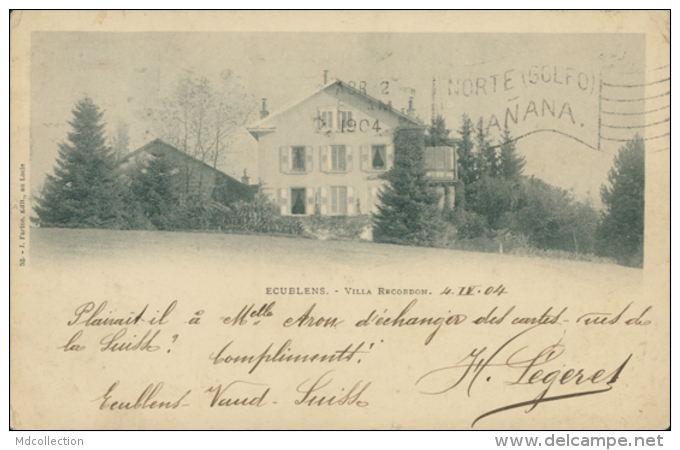 APR 2
AM
1904
NORTE (GOLFO)
MAÑANA.
52. - J. Furter, Edit., au Locle
ECUBLENS. - VILLA RECORDON. 4.IV.04
Plairait-il à Mlle Aron d'échanger des cartes-vues de
la Suisse?
Compliments!
H. Légeret
Ecublens - Vaud - Suisse
Mdcollection
www.delcampe.net